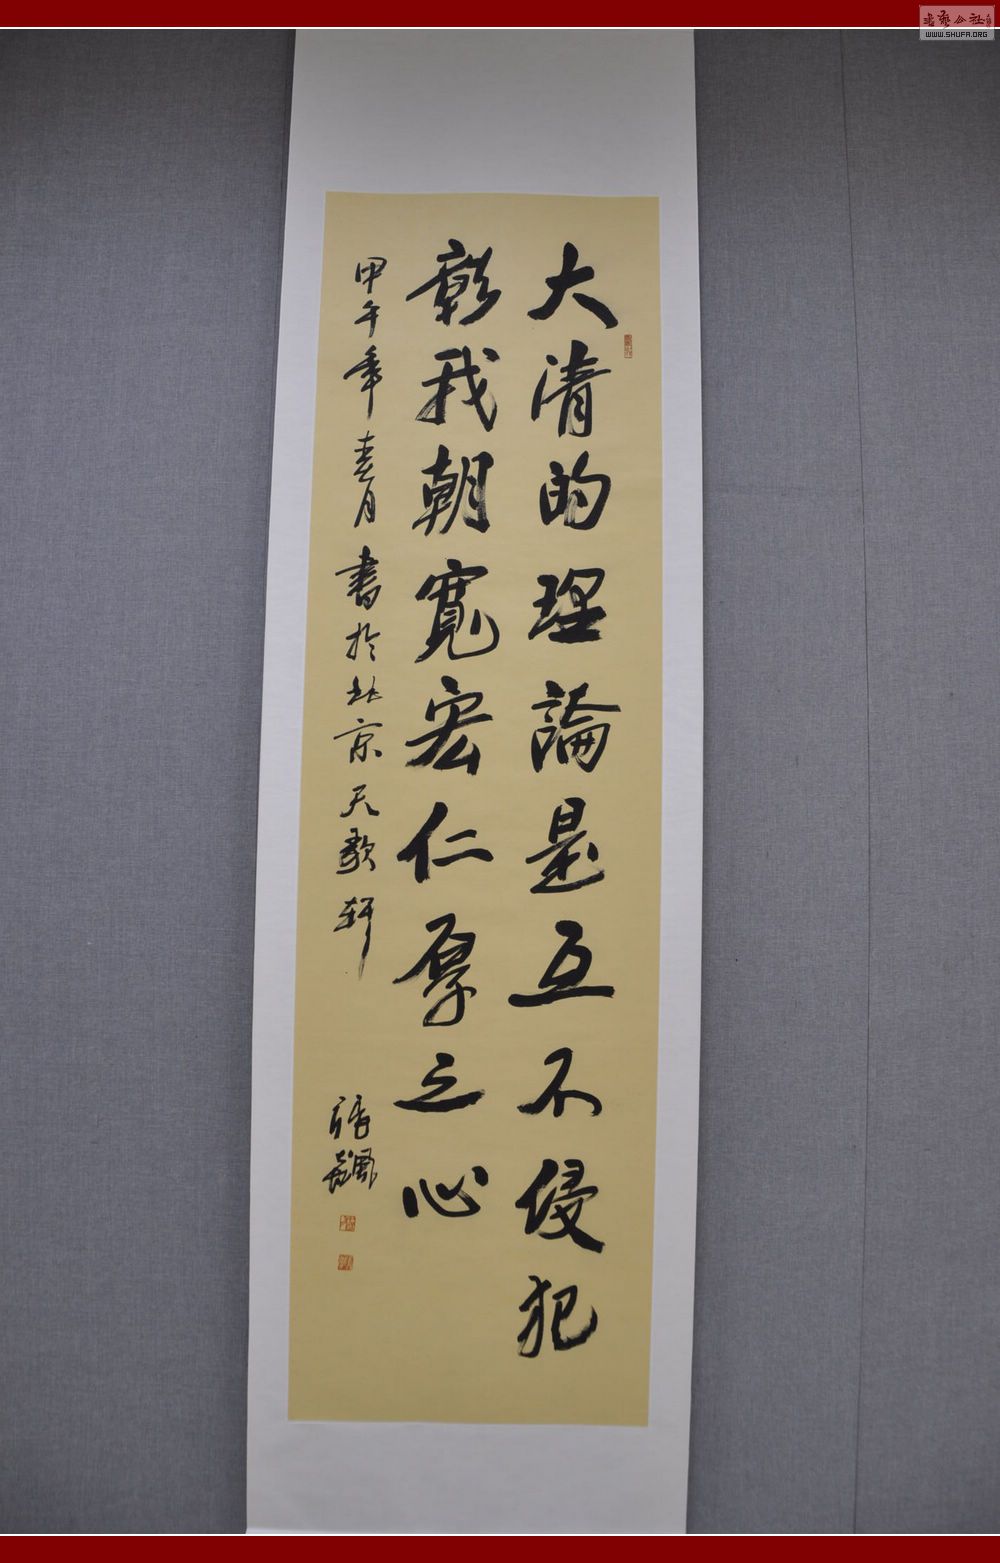 大清的理論是互不侵犯
彰我朝寬宏仁厚之心
甲午年春月書於北京天歌軒
WWW.SHUFA.ORG